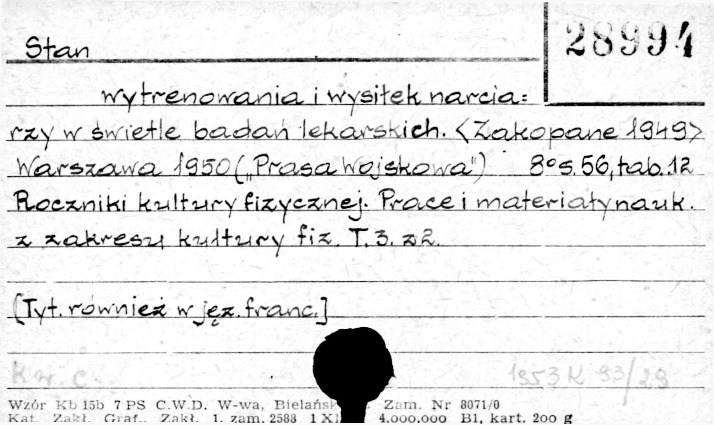 28994
Stan
wytrenowania i wysiłek narcia=
rzy w świetle badań lekarskich. <Zakopane 1949>
Warszawa 1950 („Prasa Wojskowa") 8° s. 56, tab. 12
Roczniki kultury fizycznej. Prace i materiały nauk.
z zakresu kultury fiz. T. 3. z 2.
[Tyt. również w jęz. franc.]
1953 K 93/29
Wzór Kb 15b 7 PS C.W.D. W-wa, Bielańsk Zam. Nr 8071/0
Kat. Zakł. Graf., Zakł. 1. zam. 2588 1 XI 4.000.000 B1, kart. 200 g